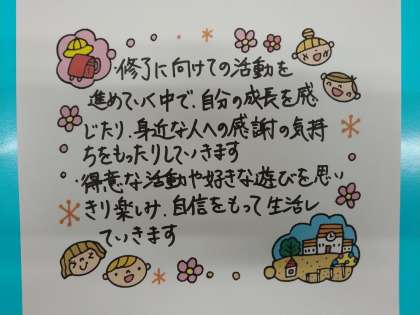 ・修了に向けての活動を
進めていく中で、自分の成長を感
じたり、身近な人への感謝の気持
ちをもったりしていきます
・得意な活動や好きな遊びを思い
きり楽しみ、自信をもって生活し
ていきます